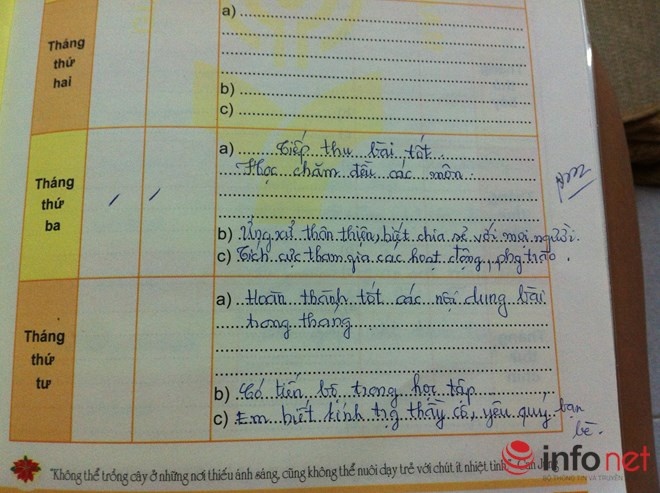 Tháng thứ hai
a)
b)
c)
Tháng thứ ba
a) Tiếp thu bài tốt.
Học chăm đều các môn.
b) Ứng xử thân thiện, biết chia sẻ với mọi người.
c) Tích cực tham gia các hoạt động, phg trào.
Tháng thứ tư
a) Hoàn thành tốt các nội dung bài
trong tháng
b) Có tiến bộ trong học tập
c) Em biết kính trg thầy cô, yêu quý bạn
bè.
"Không thể trồng cây ở những nơi thiếu ánh sáng, cũng không thể nuôi dạy trẻ với chút ít nhiệt tình".
infonet
BỘ THÔNG TIN VÀ TRUYỀN